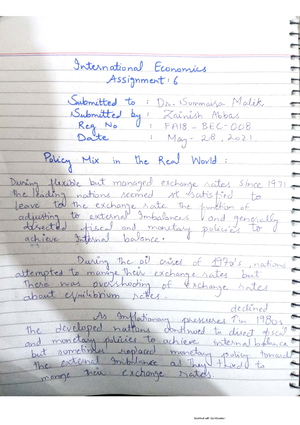 International Economics
Assignment: 6
Submitted to : Dr. Summaira Malik
Submitted by : Zainish Abbas
Reg No : FA18-BEC-008
Date : May-28, 2021
Policy Mix in the Real World :
During flexible but managed exchange rates since 1971
the leading nations seemed satisfied to
leave to the exchange rate the function of
adjusting to external imbalances and generally
directed fiscal and monetary policies to
achieve internal balance.
During the oil crises of 1970's, nations
attempted to manage their exchange rates but
there was overshooting of exchange rates
about equilibrium rates.
declined
As inflationary pressures in 1980s,
the developed nations continued to direct fiscal
and monetary policies to achieve internal balance
but sometimes replaced monetary policy toward
the external imbalance as they tried to
manage their exchange rates.